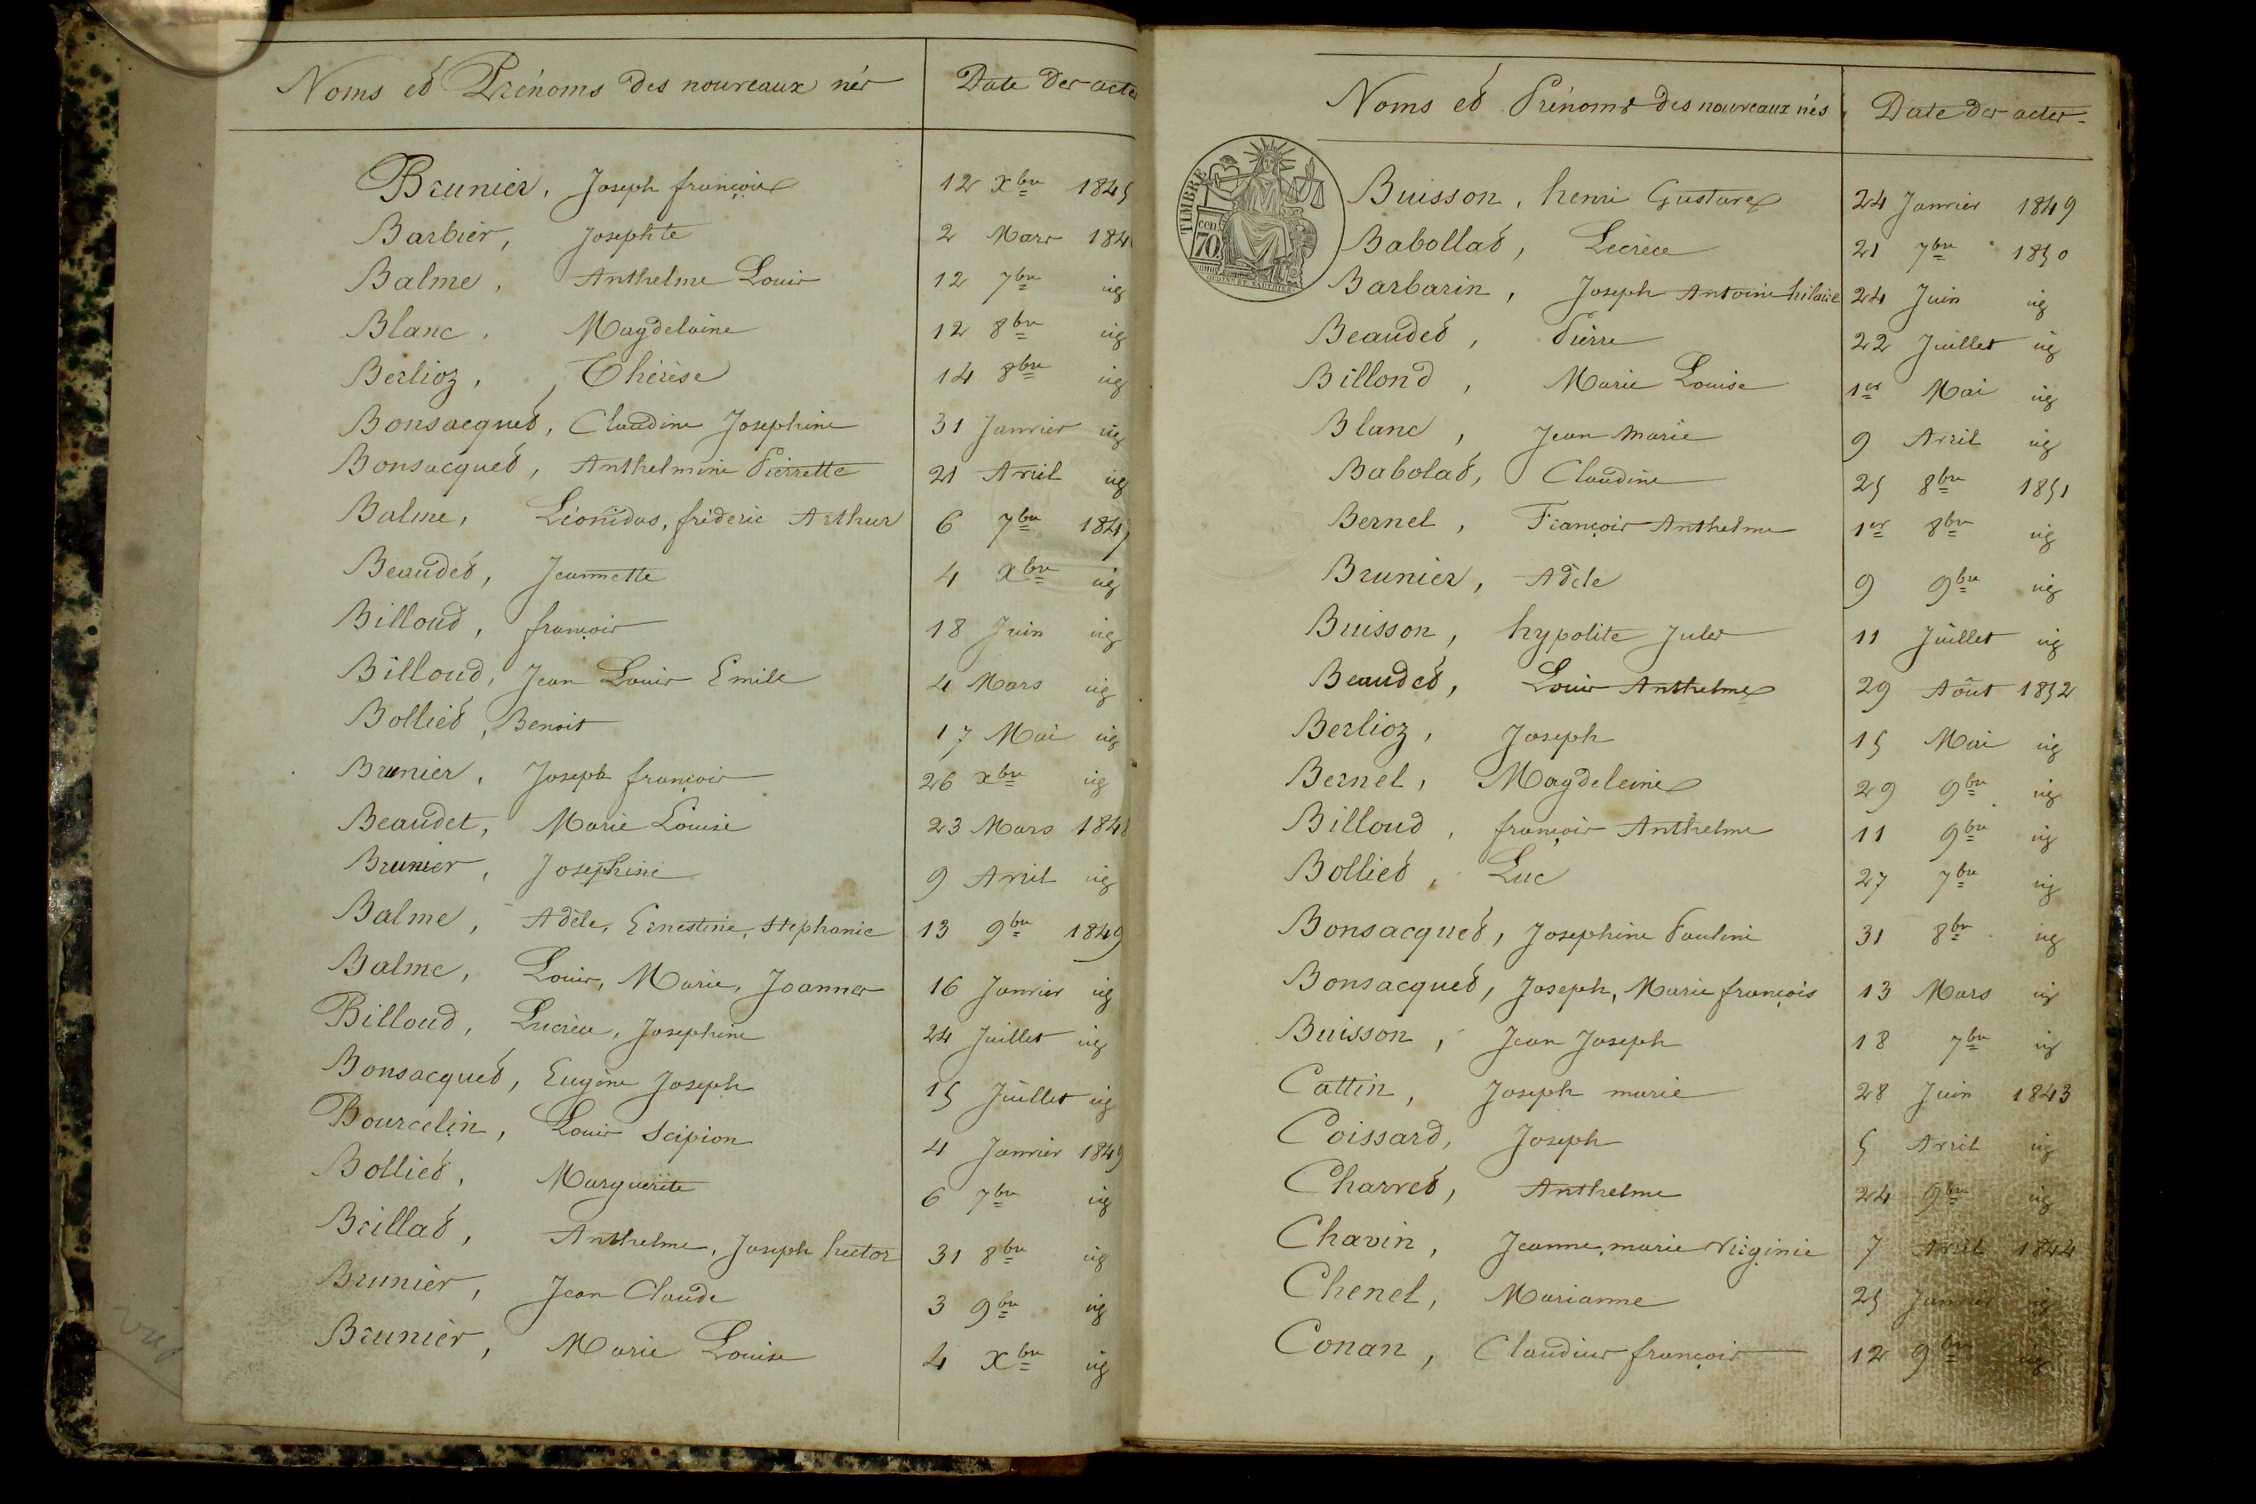 Noms et Prénoms des nouveaux nés Date des actes
Brunier, Joseph françois 12 Xbre 1845
Barbier, Josephte 2 Mars 184
Balme, Anthelme Louis 12 7bre id
Blanc, Magdelaine 12 8bre id
Berlioz, Thérèse 14 8bre id
Bonsacquet, Claudine Josephine 31 Janvier id
Bonsacquet, Anthelmine Pierrette 21 Avril id
Balme, Léonidas, fréderic Arthur 6 7bre 1847
Beaudet, Jeannette 4 Xbre id
Billoud, françois 18 Juin id
Billoud, Jean Louis Emile 4 Mars id
Bolliet, Benoit 17 Mai id
Brunier, Joseph françois 26 Xbre id
Beaudet, Marie Louise 23 Mars 1848
Brunier, Josephine 9 Avril id
Balme, Adèle, Ernestine, Stephanie 13 9bre 1849
Balme, Louis, Marie, Joannes 16 Janvier id
Billoud, Lucrèce, Josephine 24 Juillet id
Bonsacquet, Eugène Joseph 15 Juillet id
Bourcelin, Louis Scipion 4 Janvier 1849
Bolliet, Marguerite 6 7bre id
Brillat, Anthelme, Joseph hector 31 8bre id
Brunier, Jean Claude 3 9bre id
Brunier, Marie Louise 4 Xbre id
Noms et Prénoms des nouveaux nés Date des actes
TIMBRE
70
Buisson, henri Gustave 24 Janvier 1849
Babollat, Lucrèce 21 7bre 1850
Barbarin, Joseph Antoine hilaire 24 Juin id
Beaudet, Pierre 22 Juillet id
Billoud, Marie Louise 1er Mai id
Blanc, Jean Marie 9 Avril id
Babolat, Claudine 25 8bre 1851
Bernel, François Anthelme 1er 8bre id
Brunier, Adèle 9 9bre id
Buisson, hypolite Jules 11 Juillet id
Beaudet, Louis Anthelme 29 Août 1852
Berlioz, Joseph 15 Mai id
Bernel, Magdeleine 29 9bre id
Billoud, françois Anthelme 11 9bre id
Bolliet, Luc 27 7bre id
Bonsacquet, Josephine Pauline 31 8bre id
Bonsacquet, Joseph, Marie françois 13 Mars id
Buisson, Jean Joseph 18 7bre id
Cattin, Joseph marie 28 Juin 1843
Coissard, Joseph 5 Avril id
Charvet, Anthelme 24 9bre id
Chavin, Jeanne, marie Virginie 7 Avril 1844
Chenel, Marianne 25 Janvier id
Conan, Claudius françois 12 9bre id